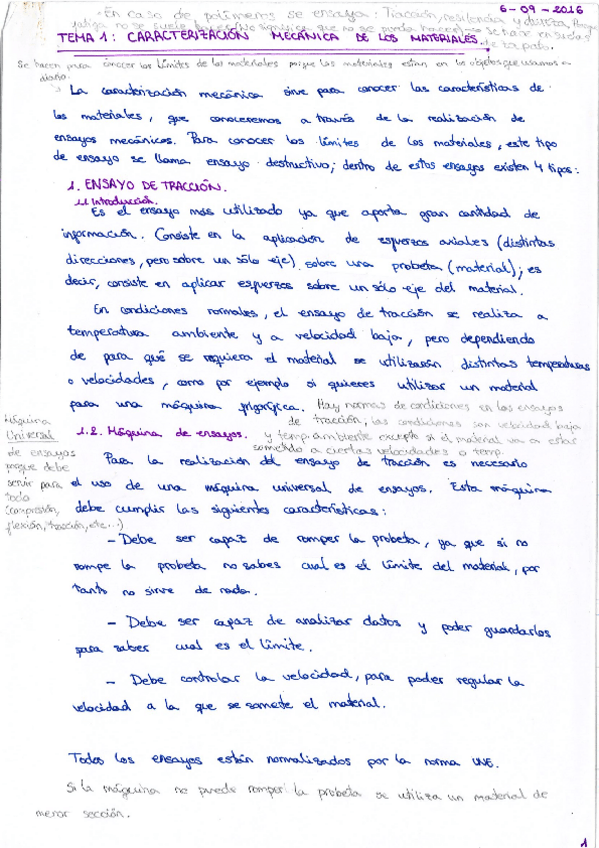 -En caso de polímeros se ensaya: Tracción, resiliencia y dureza.
6-09-2016
TEMA 1: CARACTERIZACIÓN MECÁNICA DE LOS MATERIALES.
Se hacen para conocer los límites de los materiales porque los materiales están en los objetos que usamos a
diario.
La caracterización mecánica sirve para conocer las características de
los materiales, que conoceremos a través de la realización de
ensayos mecánicos. Para conocer los límites de los materiales, este tipo
de ensayo se llama ensayo destructivo; dentro de estos ensayos existen 4 tipos:
1. ENSAYO DE TRACCIÓN.
1.1 Introducción.
Es el ensayo más utilizado ya que aporta gran cantidad de
información. Consiste en la aplicación de esfuerzos axiales (distintas
direcciones, pero sobre un sólo eje) sobre una probeta (material); es
decir, consiste en aplicar esfuerzos sobre un sólo eje del material.
En condiciones normales, el ensayo de tracción se realiza a
temperatura ambiente y a velocidad baja, pero dependiendo
de para qué se requiera el material se utilizarán distintas temperaturas
o velocidades, como por ejemplo si quieres utilizar un material
para una máquina frigorífica. Hay normas de condiciones en los ensayos
de tracción, las condiciones son velocidad baja
y temp. ambiente excepto si el material va a estar
sometido a ciertas velocidades o temp.
1.2. Máquina de ensayos.
Máquina
Universal
de ensayos
porque debe
servir para
todo
(compresión,
flexión, tracción, etc...)
Para la realización del ensayo de tracción es necesario
el uso de una máquina universal de ensayos. Esta máquina
debe cumplir las siguientes características:
- Debe ser capaz de romper la probeta, ya que si no
rompe la probeta no sabes cual es el límite del material, por
tanto no sirve de nada.
- Debe ser capaz de analizar datos y poder guardarlos
para saber cual es el límite.
- Debe controlar la velocidad, para poder regular la
velocidad a la que se somete el material.
Todos los ensayos están normalizados por la norma UNE.
Si la máquina no puede romper la probeta se utiliza un material de
menor sección.
1